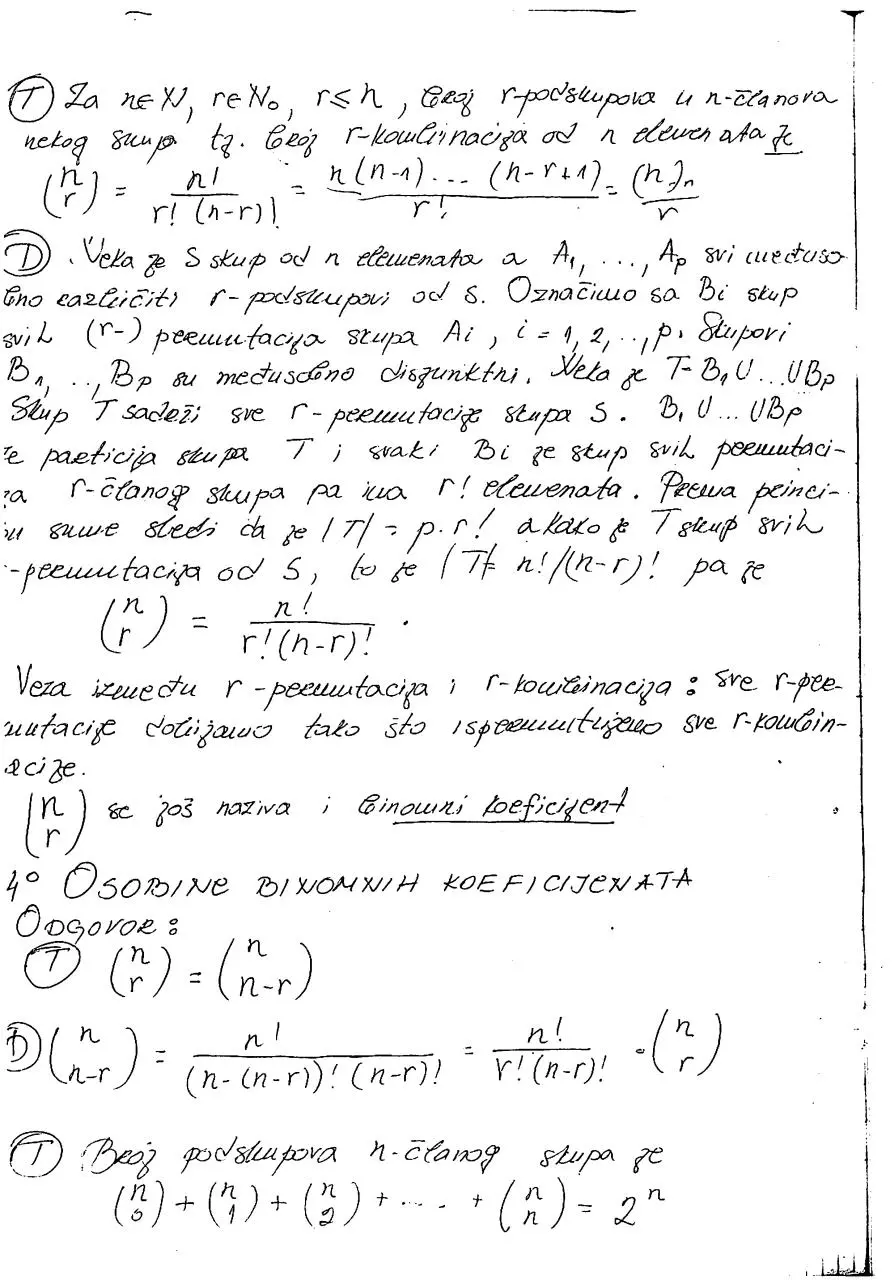 (T) Za n∈N, r∈N₀, r≤n, broj r-podskupova u n-članova
nekog skupa tj. broj r-kombinacija od n elemenata je
(n r) = n! / r!(n-r)! = n(n-1)...(n-r+1) / r! = (n)ₙ / r
(D) Neka je S skup od n elemenata a A₁, ..., Aₚ svi međuso-
bno različiti r-podskupovi od S. Označimo sa Bi skup
svih (r-) permutacija skupa Ai, i = 1, 2, .., p. Skupovi
B₁, .., Bₚ su međusobno disjunktni. Neka je T= B₁U...UBₚ
Skup T sadrži sve r-permutacije skupa S. B₁U...UBₚ
je particija skupa T i svaki Bi je skup svih permutaci-
ja r-članog skupa pa ima r! elemenata. Prema princi-
pu sume sledi da je |T| = p.r! a kako je T skup svih
-permutacija od S, to je |T|= n!/(n-r)! pa je
(n r) = n! / r!(n-r)! .
Veza između r-permutacija i r-kombinacija: sve r-per-
mutacije dobijamo tako što ispermutujemo sve r-kombin-
acije.
(n r) se još naziva i binomni koeficijent
4° OSOBINE BINOMNIH KOEFICIJENATA
ODGOVOR:
(T) (n r) = (n n-r)
(D) (n n-r) = n! / (n-(n-r))!(n-r)! = n! / r!(n-r)! = (n r)
(T) Broj podskupova n-članog skupa je
(n 0) + (n 1) + (n 2) + .... + (n n) = 2ⁿ